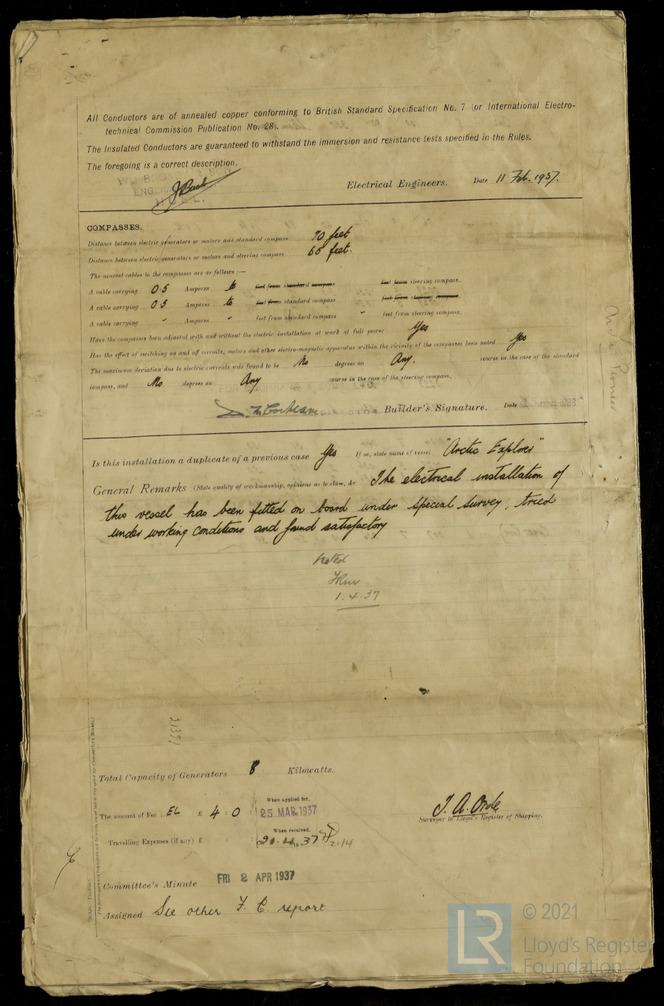 All Conductors are of annealed copper conforming to British Standard Specification No. 7 (or International Electro-
technical Commission Publication No. 28).
The Insulated Conductors are guaranteed to withstand the immersion and resistance tests specified in the Rules.
The foregoing is a correct description.
Electrical Engineers. Date 11 Feb. 1937.
COMPASSES.
Distance between electric generators or motors and standard compass 70 feet
Distance between electric generators or motors and steering compass 65 feet.
The nearest cables to the compasses are as follows:—
A cable carrying 0.5 Ampères to feet from standard compass feet from steering compass.
A cable carrying 0.5 Ampères to feet from standard compass feet from steering compass.
A cable carrying " Ampères " feet from standard compass " feet from steering compass.
Have the compasses been adjusted with and without the electric installation at work at full power Yes
Has the effect of switching on and off circuits, motors and other electro-magnetic apparatus within the vicinity of the compasses been noted Yes
The maximum deviation due to electric currents was found to be No degrees on Any. course in the case of the standard
compass, and No degrees on Any course in the case of the steering compass.
Builder's Signature. Date
Is this installation a duplicate of a previous case Yes If so, state name of vessel "Arctic Explorer"
General Remarks (State quality of workmanship, opinions as to class, &c. The electrical installation of
this vessel has been fitted on board under special survey, tried
under working conditions and found satisfactory
Noted
1.4.37
Total Capacity of Generators 8 Kilowatts.
The amount of Fee EL £ 4 : 0 : When applied for, 25 MAR 1937
Travelling Expenses (if any) £ : : When received, 20.4.1937 21/4
Surveyor to Lloyd's Register of Shipping.
Committee's Minute FRI 2 APR 1937
Assigned See other F. E. report
LR © 2021
Lloyd's Register
Foundation